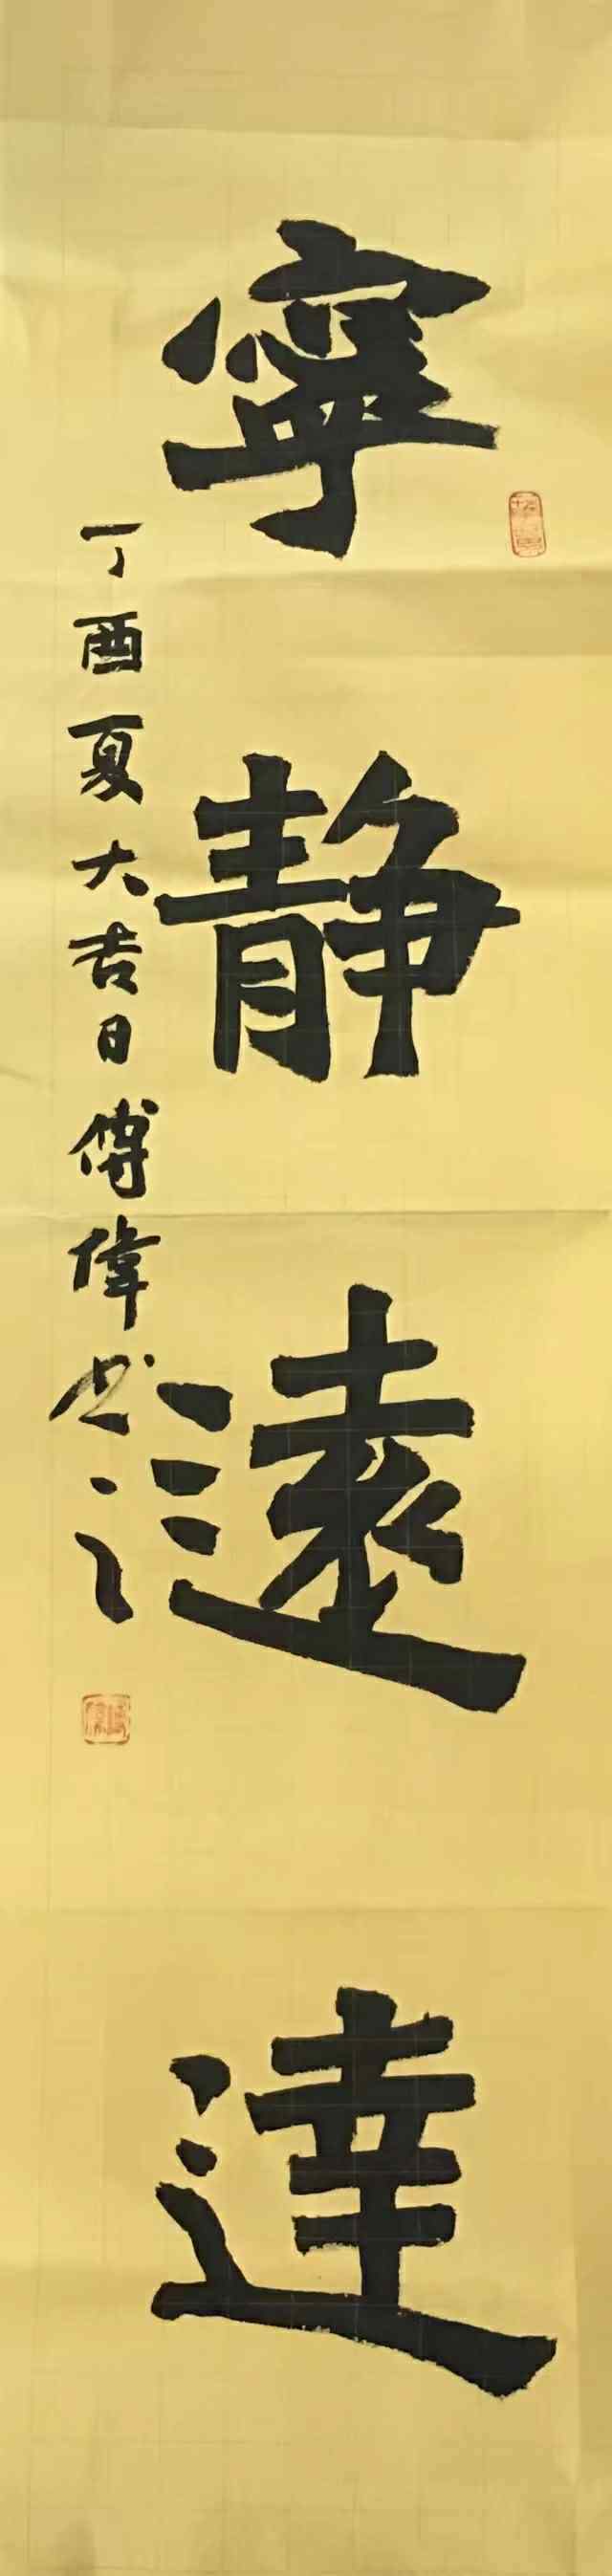 寧静遠達
丁酉夏大吉日傅偉书之